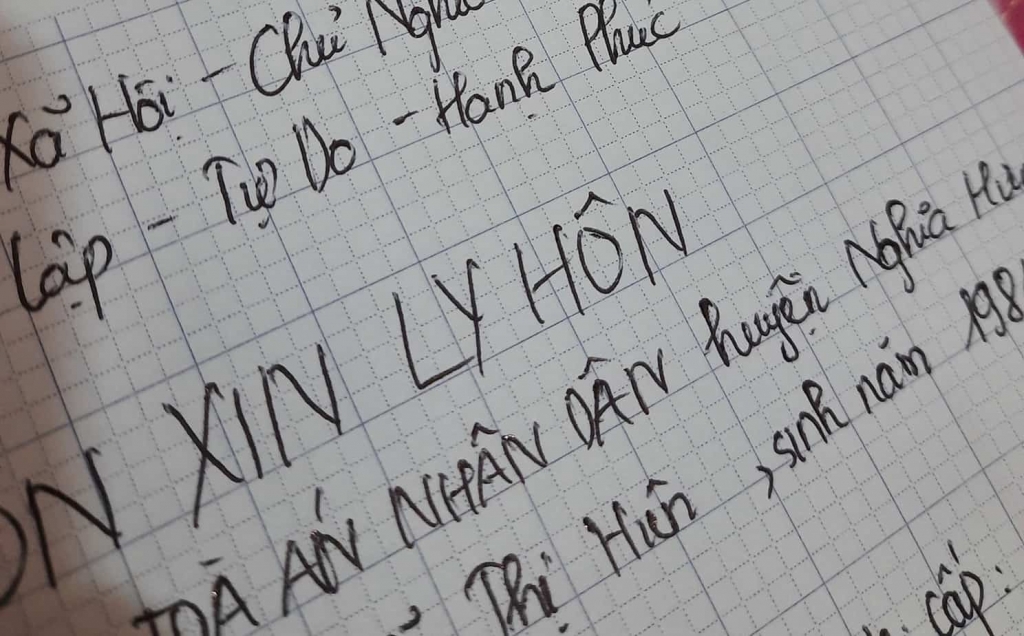 Xã Hội - Chủ Nghĩa
Lập - Tự Do - Hạnh Phúc
XIN LY HÔN
TOÀ ÁN NHÂN DÂN huyện Nghĩa
Thị Hưn , sinh năm 198
cấp: